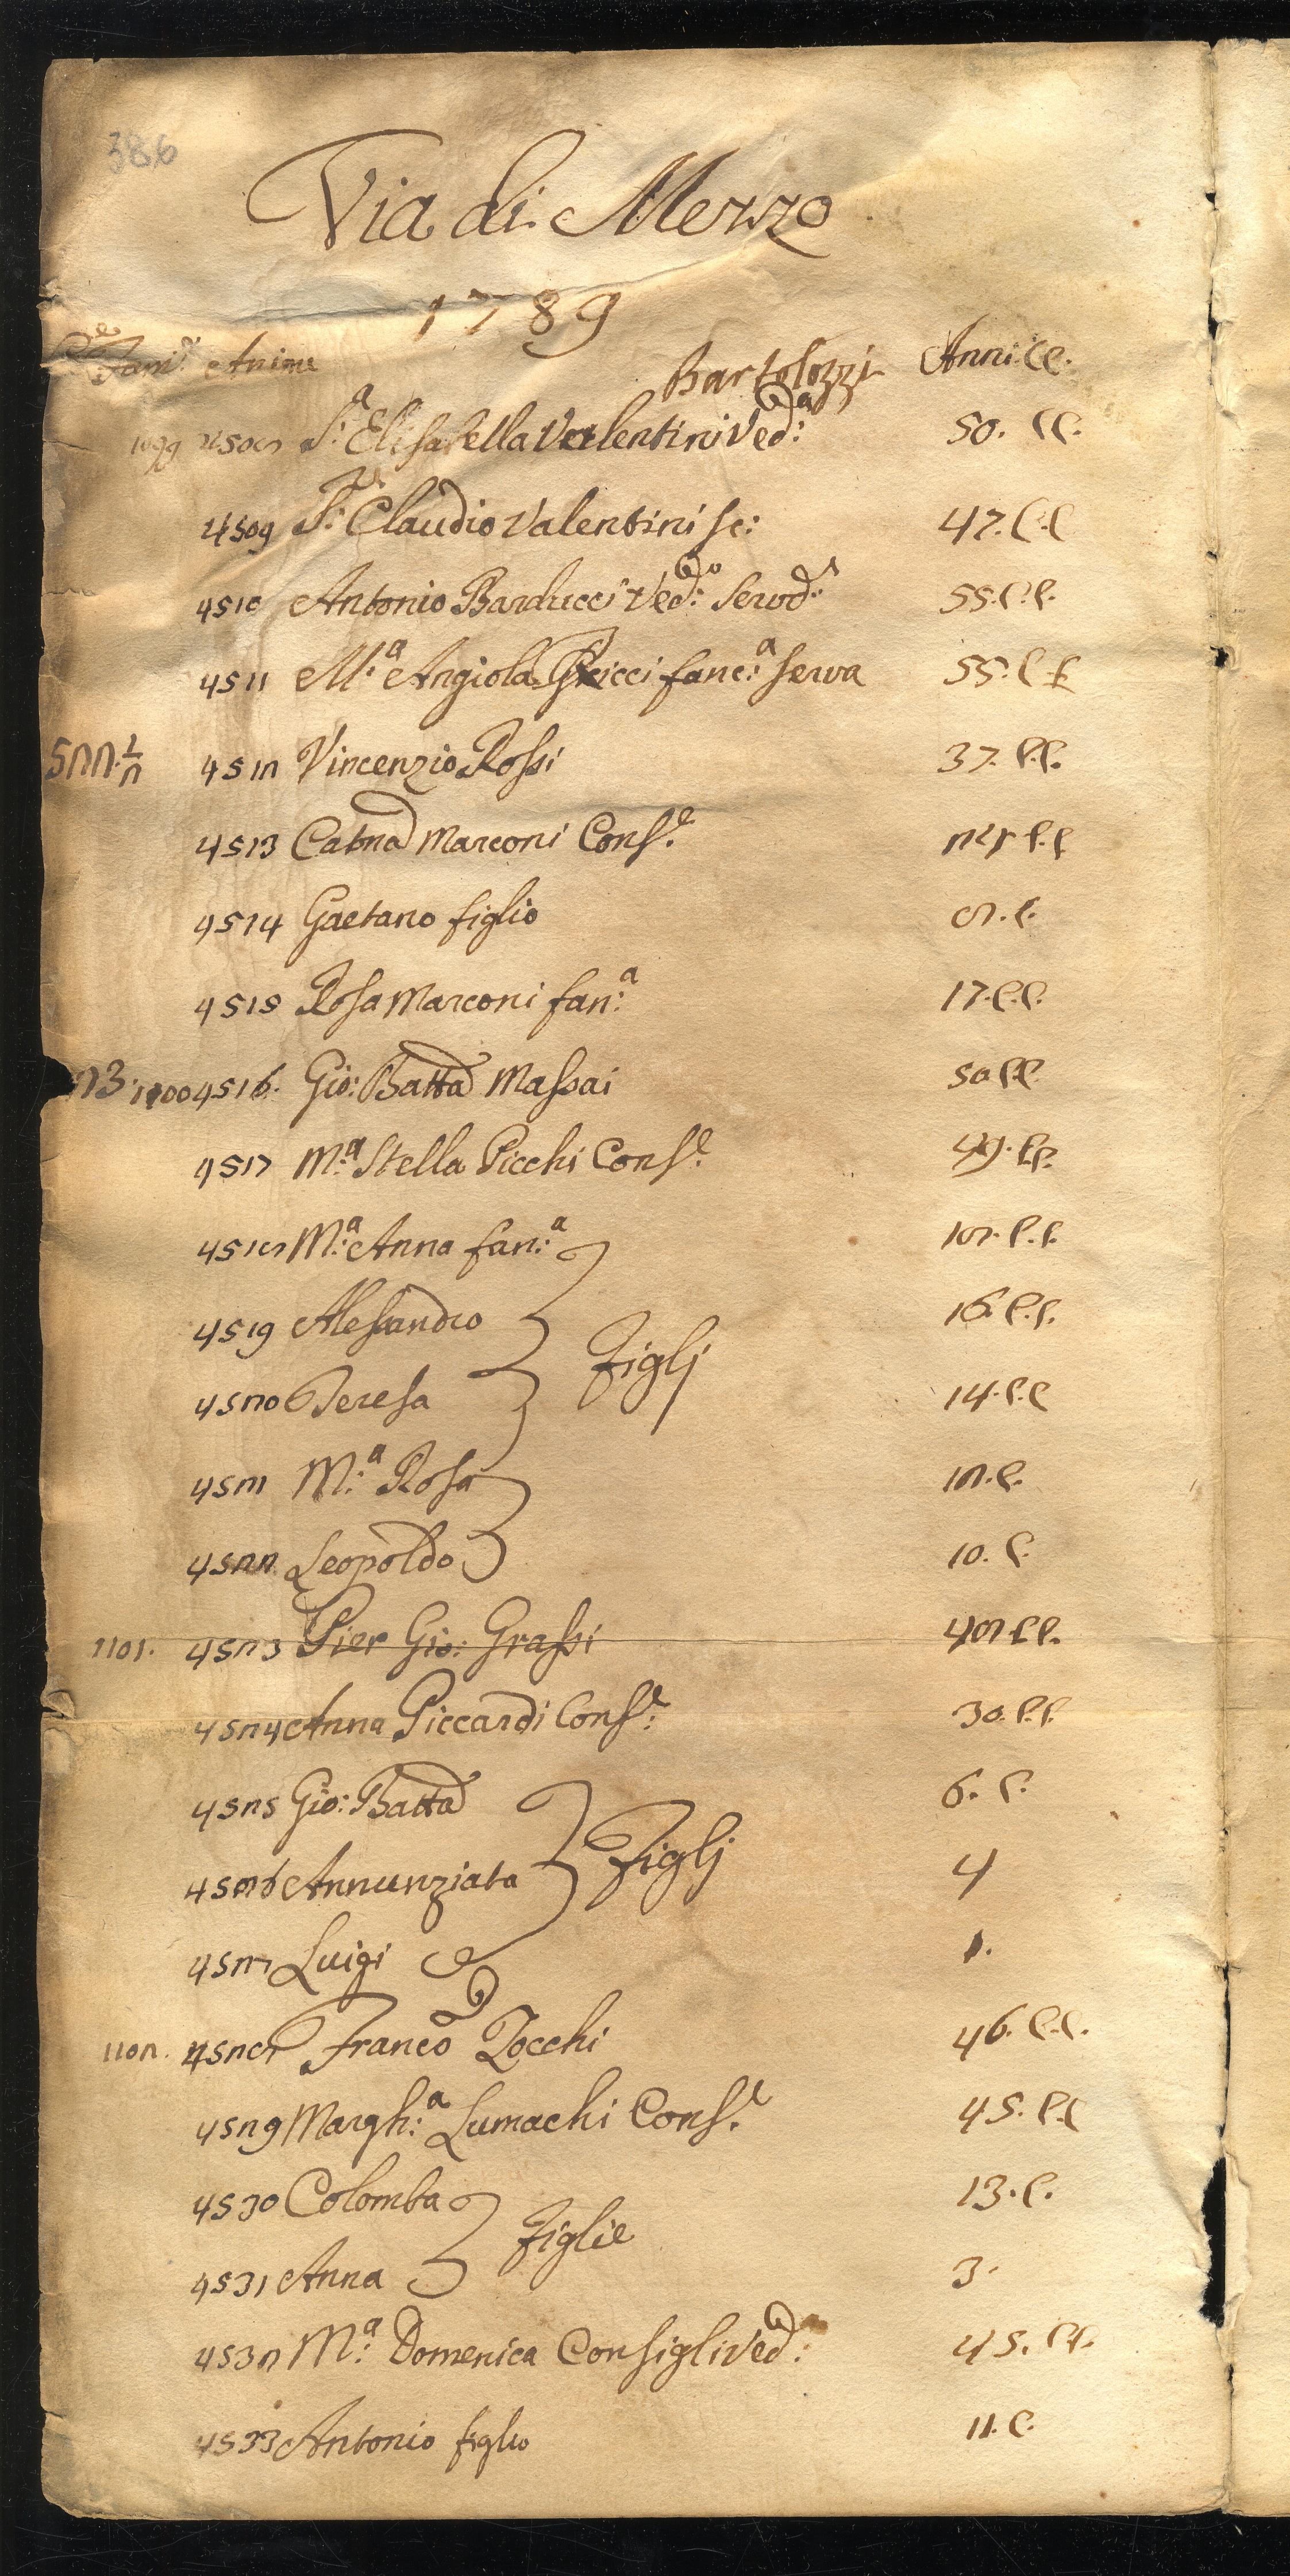 386
Via di Mezzo
1789
Fam.e Anime Anni. CC.
Bartolozzi
1099 4508 S:a Elisabetta Valentini Ved:a 50. CC.
4509 S:r Claudio Valentini sc: 47. C.C
4510 Antonio Barducci Ved:o Servo.e 55. C.C.
4511 M:a Angiola Gricci fanc:a serva 55. C C
522.1/2 4512 Vincenzio Rossi 37. C.C.
4513 Catna Marconi Cons.e 24 C.C
4514 Gaetano figlio 8. C.
4515 Rosa Marconi fan:a 17. C.C.
23. 1100 4516. Gio: Batta Massai 50 C.C.
4517 M:a Stella Picchi Cons.e 49. C.C.
4518 M:a Anna fan:a 18. C.C.
4519 Alessandro 16. C.C.
Figlj
4520 Teresa 14. C.C
4521 M:a Rosa 12. C.
4522 Leopoldo 10. C.
1101. 4523 Pier Gio: Grassi 48 C.C.
4524 Anna Piccardi Cons:e 30. C.C.
4525 Gio: Batta 6. C.
4526 Annunziata Figlj 4
4527 Luigi 1.
1102. 4528 Franco Zocchi 46. C.C.
4529 Margh:a Lumachi Cons.e 45. C.C
4530 Colomba 13. C.
Figlie
4531 Anna 3.
4532 M:a Domenica Consigli Ved: 45. CC.
4533 Antonio figlio 11. C.